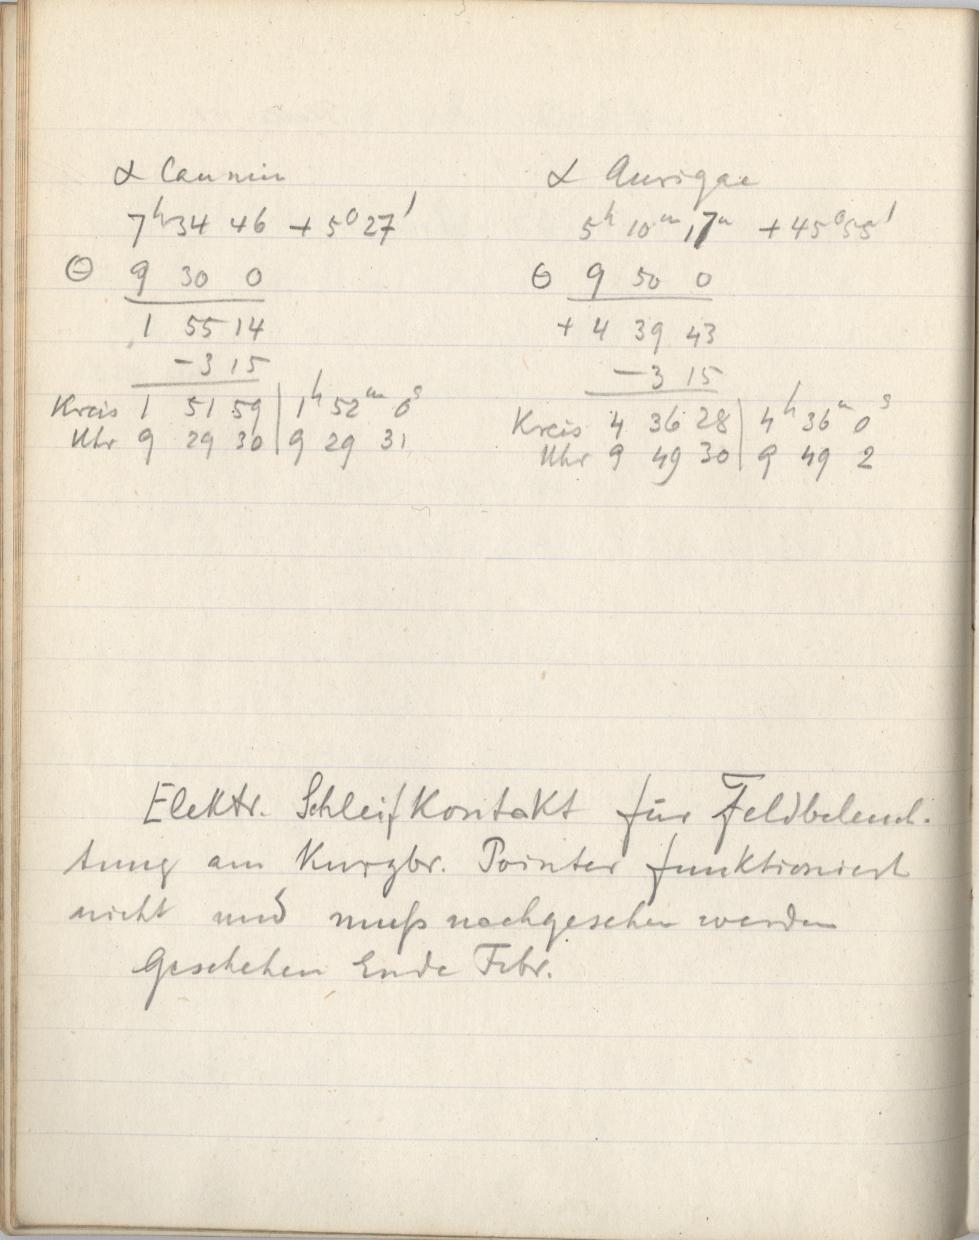 α Can min
7ʰ 34 46 + 5⁰ 27'
Θ 9 30 0
1 55 14
− 3 15
Kreis 1 51 59 | 1ʰ 52ᵐ 0ˢ
Uhr 9 29 30 | 9 29 31
α Aurigae
5ʰ 10ᵐ 17 + 45⁰ 55'
Θ 9 50 0
+ 4 39 43
− 3 15
Kreis 4 36 28 | 4ʰ 36ᵐ 0ˢ
Uhr 9 49 30 | 9 49 2
Elektr. Schleifkontakt für Feldbeleuch-
tung am Kurzbr. Pointer funktioniert
nicht und muß nachgesehen werden
Geschehen Ende Febr.